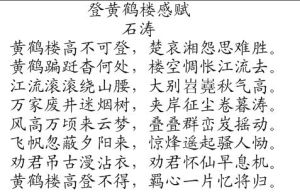 登黄鹤楼感赋
石涛
黄鹤楼高不可登，楚哀湘怨思难胜。
黄鹤骗跹杳何处，楼空惆怅江流去。
江流滚滚绕山腰，大别岧嶤秋气高。
万家废井迷烟树，夹岸征尘卷暮涛。
风高万顷来云梦，叠叠群峦岌摇动。
飞帆忽蔽夕阳来，惊烽遥起骚人恸。
劝君吊古漫沾衣，劝君怀仙早息机。
黄鹤楼高登不得，羁心一片忆将归。